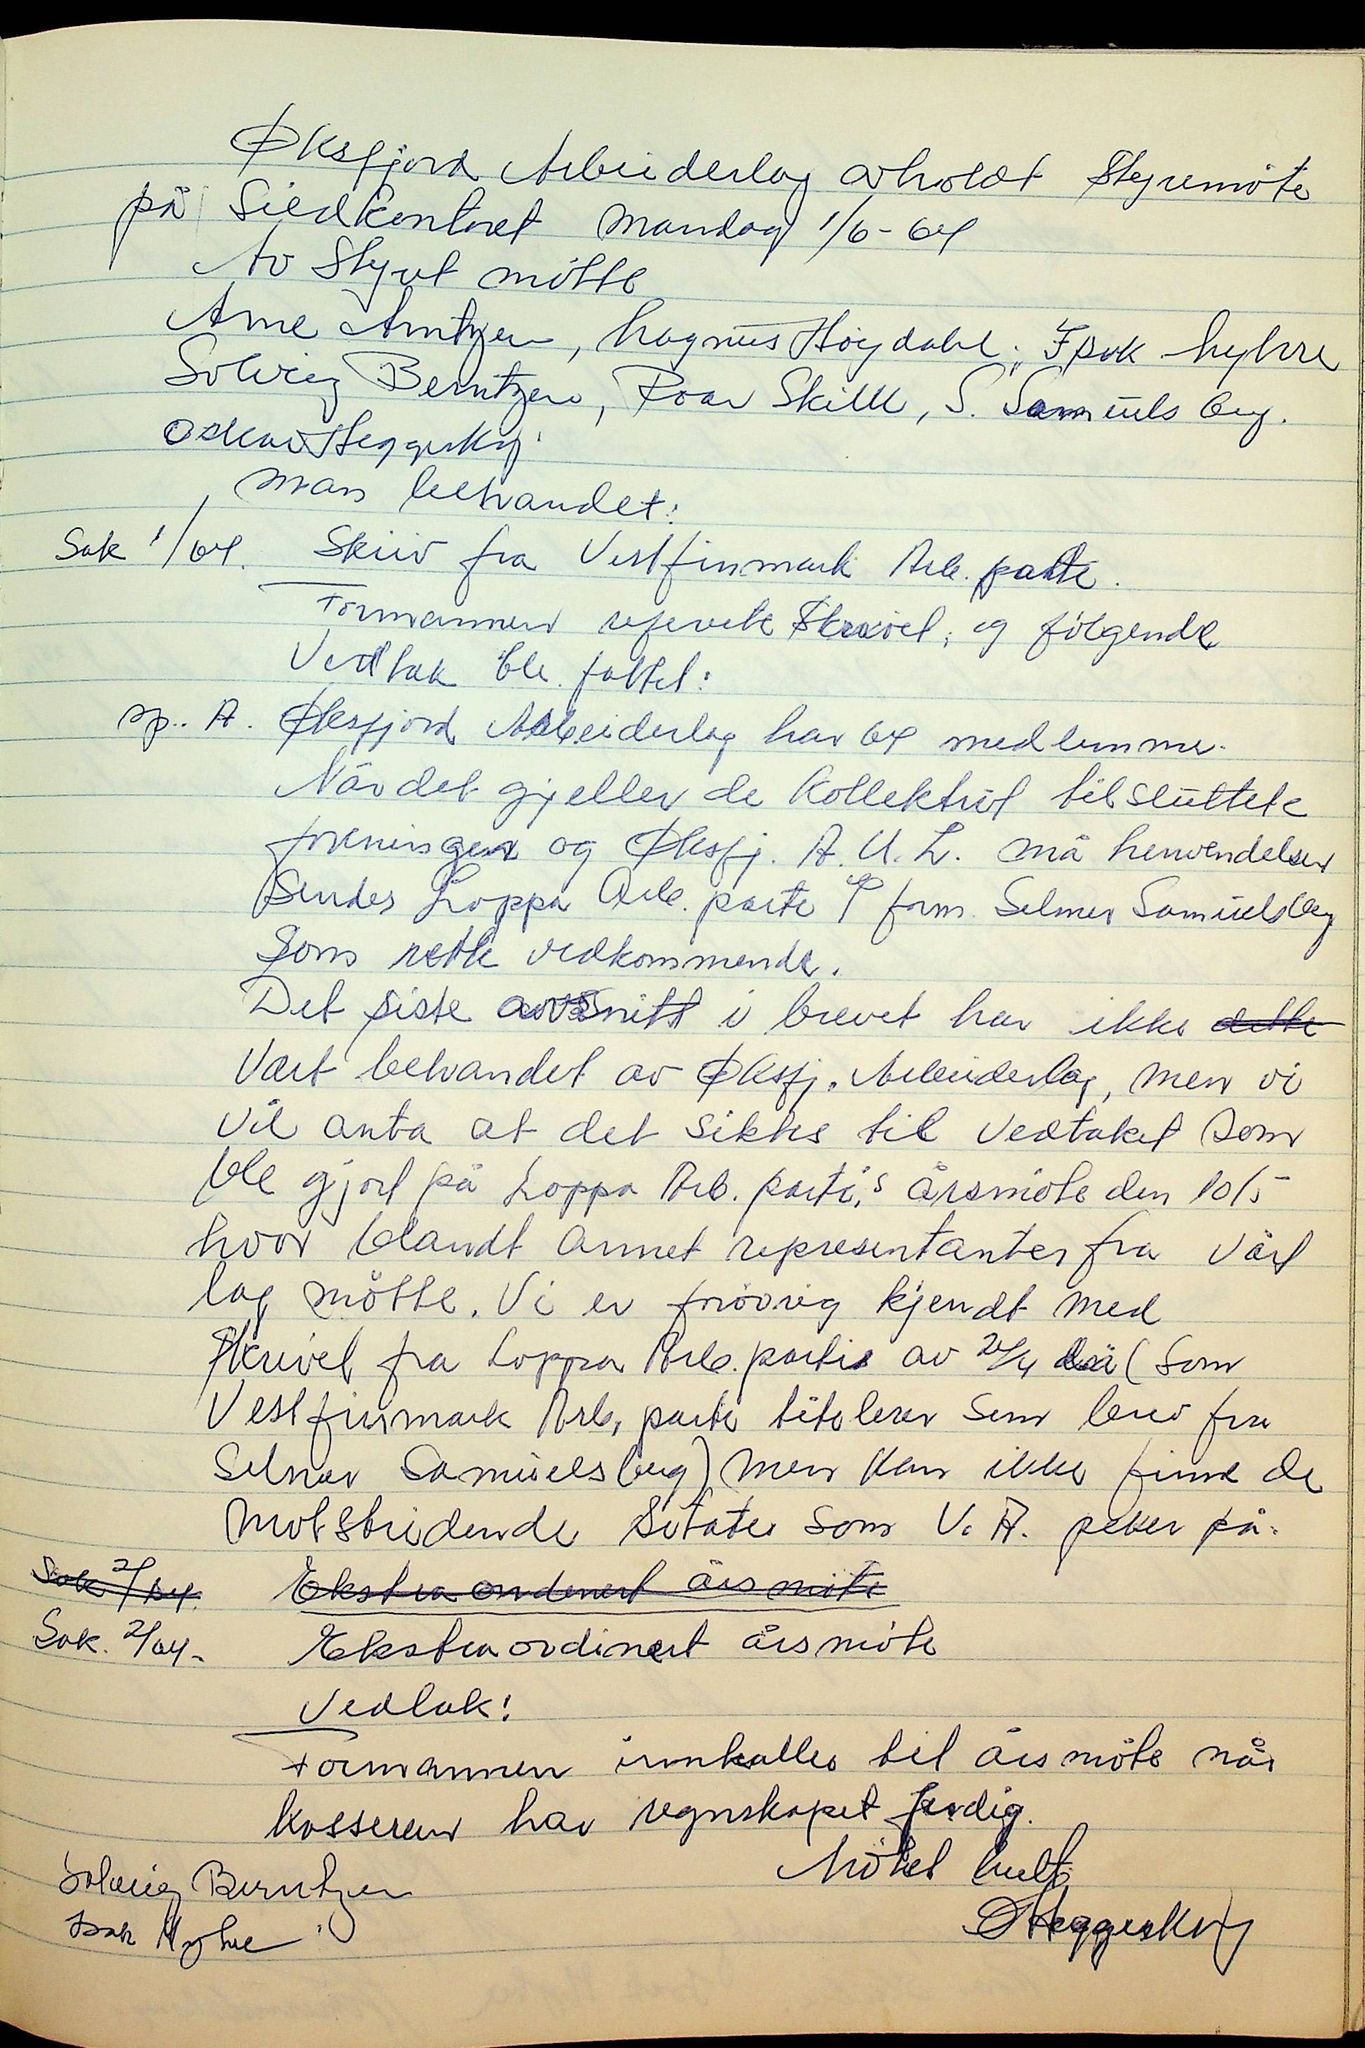 Øksfjord Arbeiderlag avholdt Styremöte
på Sildkontoret mandag 1/6-64
Av Styret mötte
Arne Arntzen, Magnus Høydahl. Isak Myhre
Solveig Berntzen, Roar Skille, S. Samuelsberg.
Oskar Heggeskog.
Man behandlet:
Sak 1/64. Skriv fra Vestfinmark Arb. parti.
Formannen refererte Skrivet, og fölgende
Vedtak ble fattet:
A. Øksfjord Arbeiderlag har 64 medlemmer.
Når det gjeller de Kollektivt tilsluttete
foreninger og Øksfj. A. U. L. må henvendelsen
Sendes Loppa Arb. parti form. Selmer Samuelsberg
Som rette vedkommende.
Det siste avsnitt i brevet har ikke dette
Vært behandlet av Øksfj. Arbeiderlag, men vi
vil anta at det siktes til Vedtaket som
ble gjort på Loppa Arb. parti,s årsmöte den 10/5
hvor blandt annet representanter fra vårt
lag møtte. Vi er forövrig kjendt med
Skrivet fra Loppa Arb. partis av 24/4 då (som
Vestfinmark Arb, parti titelerer som brev fra
Selmer Samuelsberg) men kan ikke finne de
motstridende Sitater som V. A. peker på.
Sak 2/64. Ekstra ordenert årsmöte
Sak. 2/64. Ekstraordinert årsmöte
Vedtak!
Formannen innkaller til årsmöte når
Kasseren har regnskapet ferdig.
Mötet hevet
Solveig Berntzen
OHeggeskog
Isak Myhre